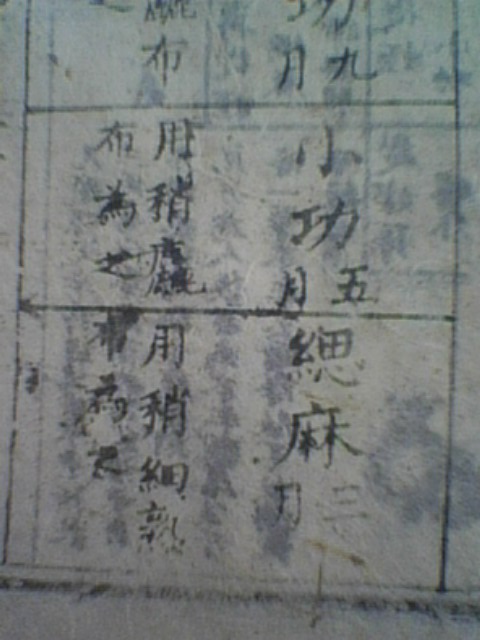 功九月
麤布
小功五月
用稍麤
布為之
緦麻三月
用稍細熟
布為之